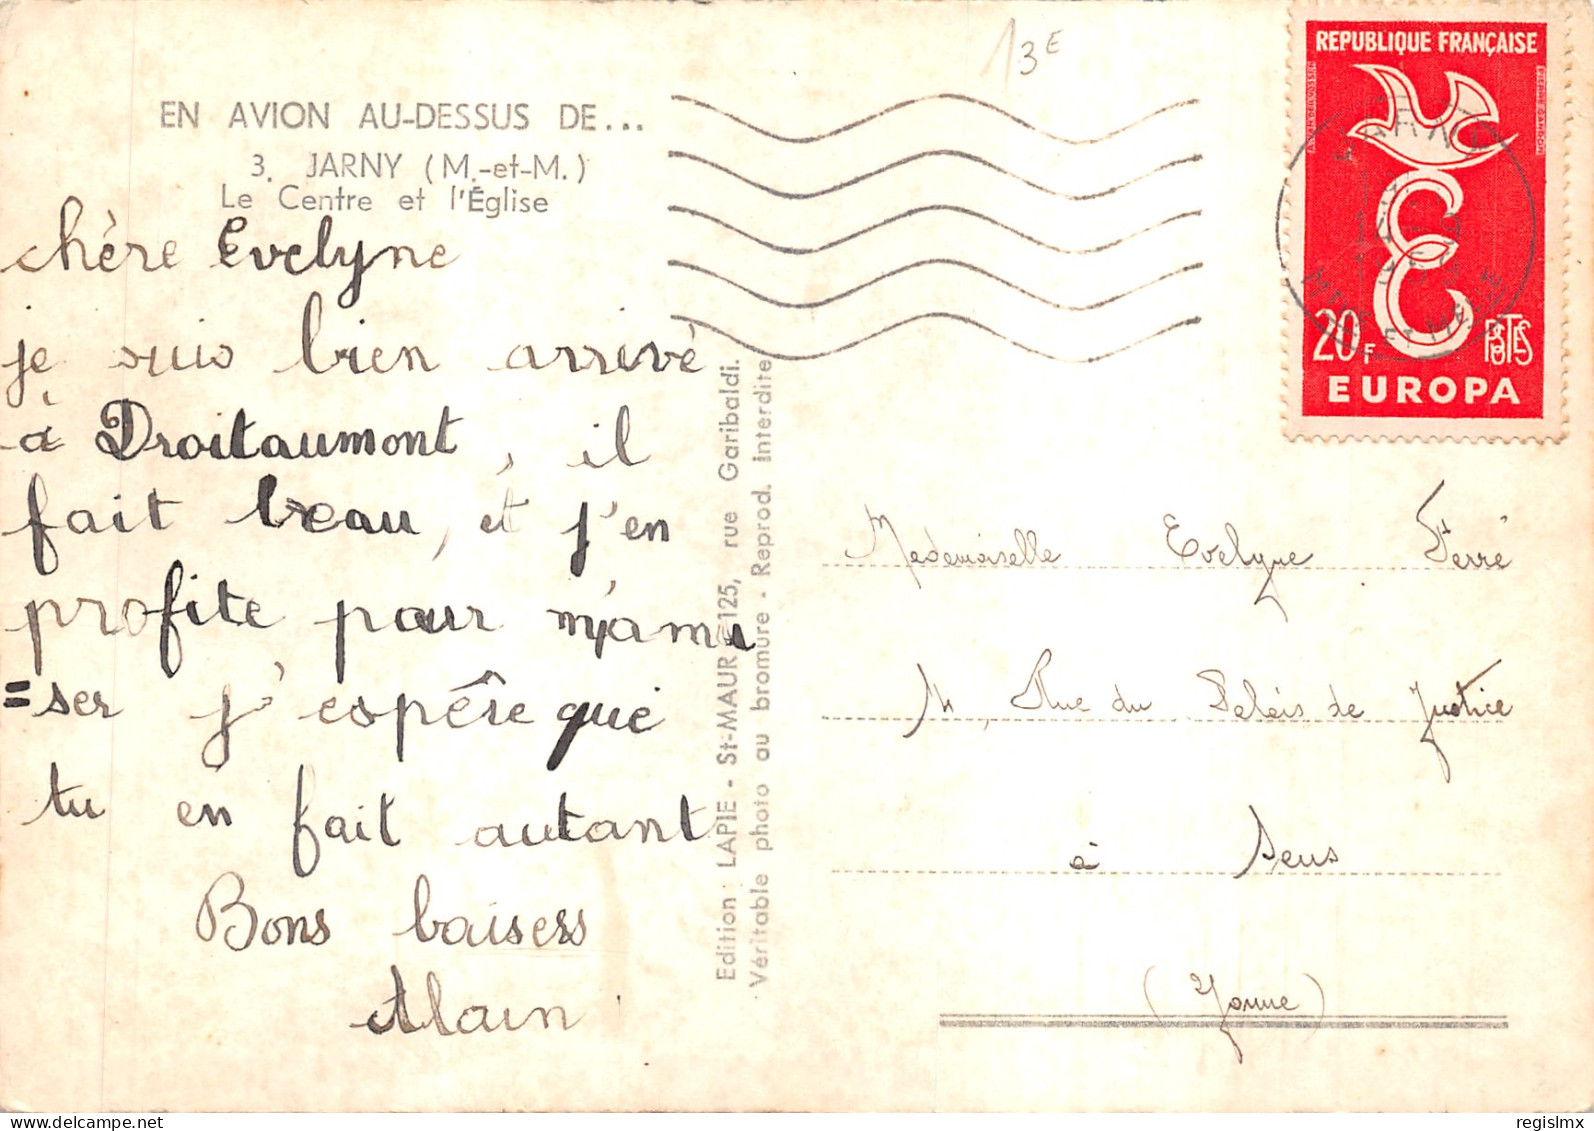 13E
EN AVION AU-DESSUS DE...
3. JARNY (M.-et-M.)
Le Centre et l'Église
chère Evelyne
je suis bien arrivé
à Droitaumont, il
fait beau, et j'en
profite pour m'amu
=ser j'espère que
tu en fait autant
Bons baisers
Alain
Edition : LAPIE - St-MAUR 125, rue Garibaldi.
Véritable photo au bromure - Reprod. Interdite
REPUBLIQUE FRANÇAISE
20F POSTES
EUROPA
JARNY
MTHE ET MELLE
Mademoiselle Evelyne Ferré
Rue du Palais de Justice
à Sens
(Yonne)
regislmx